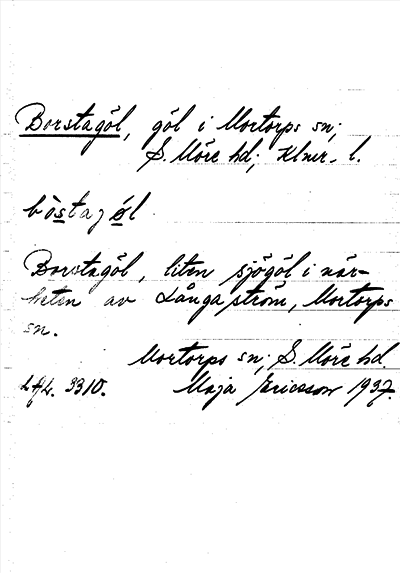 Borstagöl, göl i Mortorps sn;
S. Möre hd; Klmr. l.
bòstagǿl
Borstagöl, liten sjögöl i när-
heten av Långaström, Mortorps
sn.
Mortorps sn; S. Möre hd.
3310. Maja Ericsson 1937.